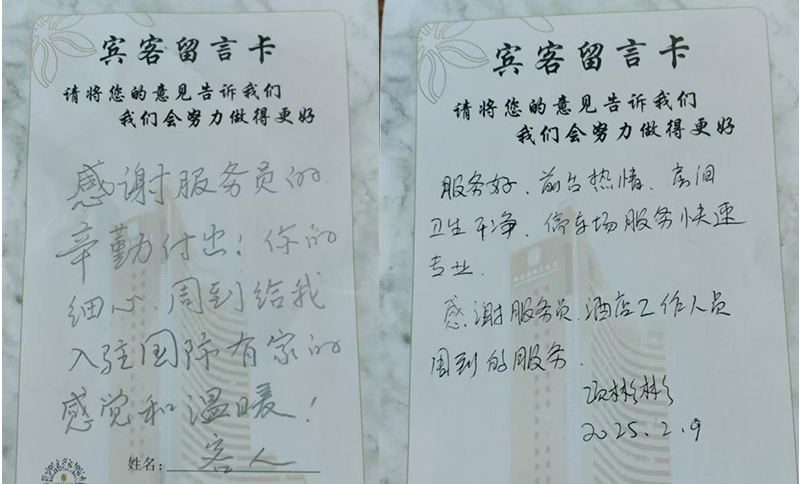 宾客留言卡
请将您的意见告诉我们
我们会努力做得更好
感谢服务员的
辛勤付出！你的
细心、周到给我
入驻国际有家的
感觉和温暖！
姓名：客人
宾客留言卡
请将您的意见告诉我们
我们会努力做得更好
服务好、前台热情、房间
卫生干净、停车场服务快速
专业.
感谢服务员、酒店工作人员
周到的服务.
2025.2.9